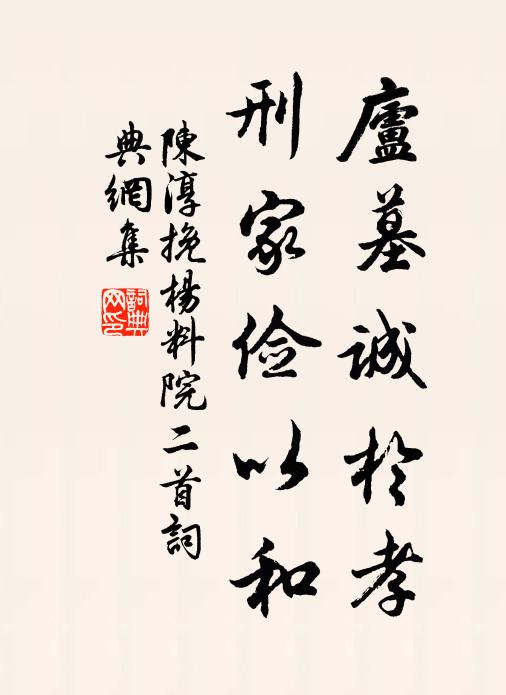 廬墓誠於孝
刑家儉以和
陳淳挽楊料院二首詞
典網集
詞典網印